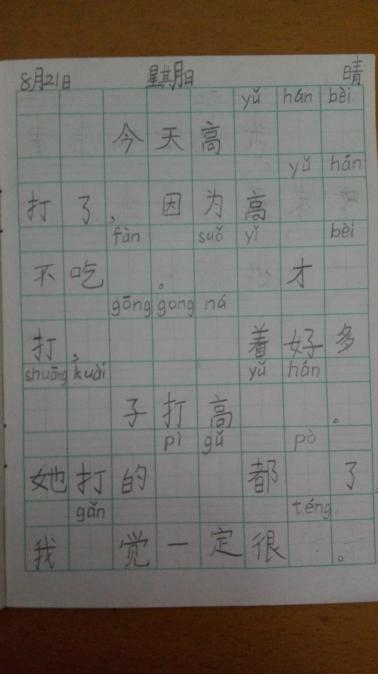 8月21日 星期日 晴
yǔ hán bèi
今天高
yǔ hán
打了，因为高
fàn suǒ yǐ bèi
不吃。才
gōng gong ná
打，着好多
shuāng kuài yǔ hán
子打高。
pì gǔ pò
她打的都了，
gǎn téng
我觉一定很。